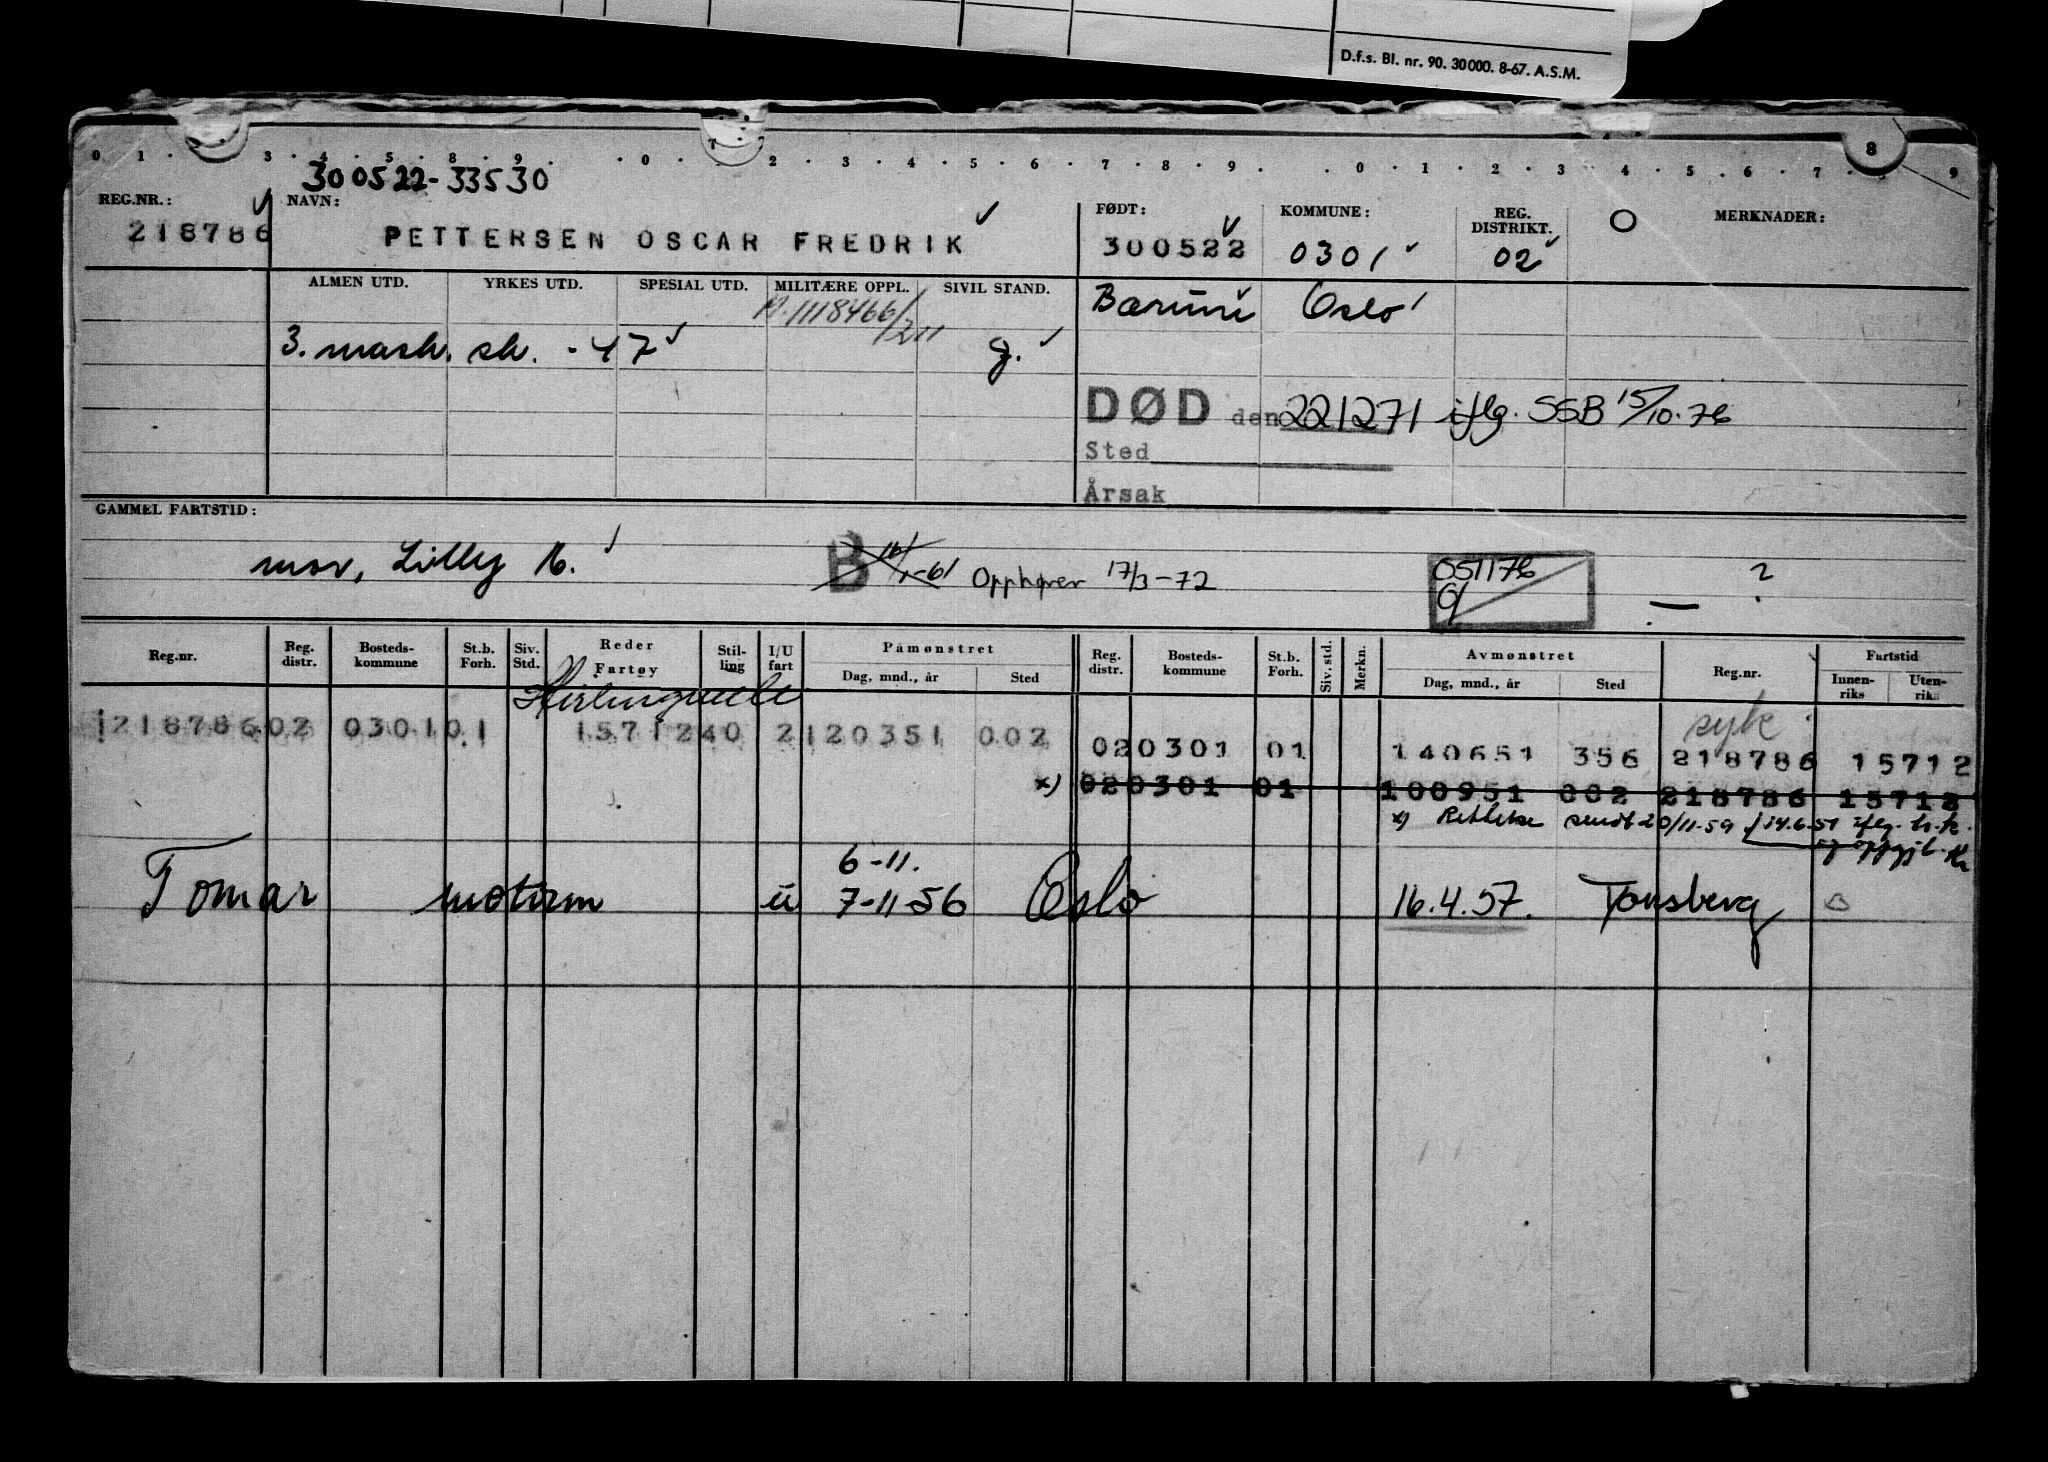 D.f.s. Bl. nr. 90. 30000. 8-67. A.S.M.
0 1 . 3 . 4 . 5 . 8 . 9 . . 0 . 1 2 . 3 . 4 . 5 . 6 . 7 . 8 . 9 . . 0 . 1 . 2 . 3 . 4 . 5 . 6 . 7 . 8 9
300522-33530
REG.NR.: NAVN: FØDT: KOMMUNE: REG. DISTRIKT. MERKNADER:
218786 PETTERSEN OSCAR FREDRIK 300522 0301 02
ALMEN UTD. YRKES UTD. SPESIAL UTD. MILITÆRE OPPL. SIVIL STAND.
1118466/211 Oslo
3. mask. sk. -47 g.
DØD den 221271 iflg. SSB 15/10.76
Sted
Årsak
GAMMEL FARTSTID:
mor, Lilly M. B 16/1-61 Opphører 17/3-72 051176 — ?
Reg.nr. Reg. distr. Bosteds-kommune St.b. Forh. Siv. Std. Reder Fartøy Stil-ling I/U fart Påmønstret Dag, mnd., år Sted Reg. distr. Bosteds-kommune St.b. Forh. Siv. std. Merkn. Avmønstret Dag, mnd., år Sted Reg.nr. Fartstid Innen-riks Uten-riks
syk
218786 02 0301 01 15712 40 2 120351 002 02 0301 01 140651 356 218786 15712
x) 02 0301 01 100951 002 218786 15712
x) Rettelse sendt 20/11.59
6-11.
Tomar motorm ü 7-11-56 Oslo 16.4.57. Tønsberg